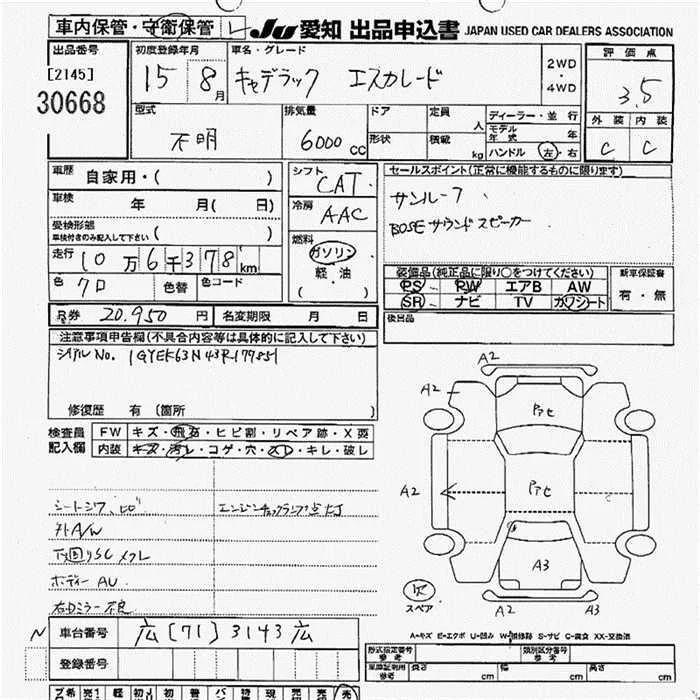 車内保管・守衛保管 レ JU 愛知 出品申込書 JAPAN USED CAR DEALERS ASSOCIATION
出品番号 初度登録年月 車名・グレード 2WD ・ 4WD 評価点
[2145] 30668 15 8月 キャデラック エスカレード 3.5
型式 排気量 ドア 定員 人 ディーラー・並行 外装 内装
不明 6000cc 形状 積載 kg モデル年式 年 C C
ハンドル 左・右
車歴 自家用・( ) シフト CAT セールスポイント(正常に機能するものに限ります)
車検 年 月( 日) 冷房 AAC サンルーフ
受検形態 車検付きのみ記入して下さい ( ) 燃料 ガソリン BOSEサウンドスピーカー
走行 10万6千378km 軽・油 ( )
装備品(純正品に限り○をつけてください) 新車保証書
色 クロ 色替 色コード PS・PW エアB AW 有・無
SR・ナビ TV カワシート
R券 20,950円 名変期限 月 日 後出品
注意事項申告欄(不具合内容等は具体的に記入して下さい)
シリアルNo. 1GYEK63N43R179851
修復歴 有 (箇所 )
検査員記入欄 FW キズ・飛石・ヒビ割・リペア跡・X要
内装 キズ・汚レ・コゲ・穴・スレ・キレ・破レ
A2
A2 Pセ
A2 Pセ
A3
スペア A2 A3
エンジンチェックランプ点灯
外A/W
ボディーAU
右Dミラー不良
A=キズ E=エクボ U=凹み W=補修跡 S=サビ C=腐食 XX=交換済
N 車台番号 広[71]3143広
登録番号
形式指定番号 参考 類別区分番号 参考
車輌証明用 参考 長さ cm 幅 cm 高さ cm